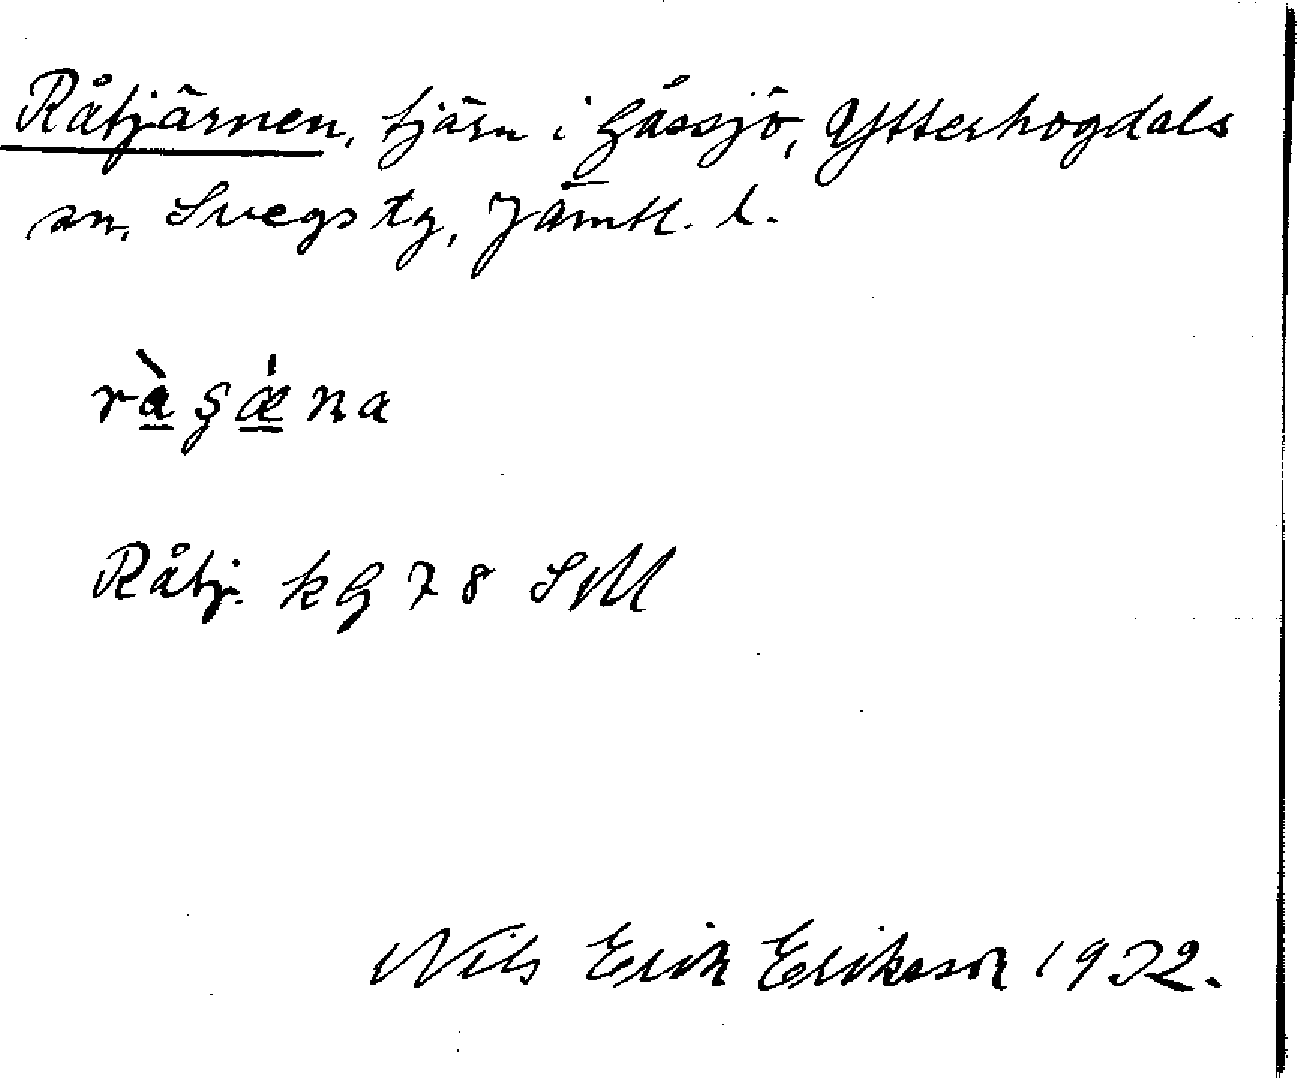 Råtjärnen, tjärn i Håssjö, Ytterhogdals
sn, Svegs tg, Jämtl. l.
rà̱ʂǽ̱na
Råtj. kG 78 SM
Nils Erik Eriksson 1932.